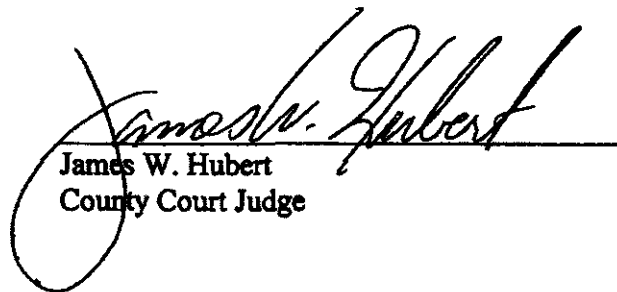 James W. Hubert
James W. Hubert
County Court Judge